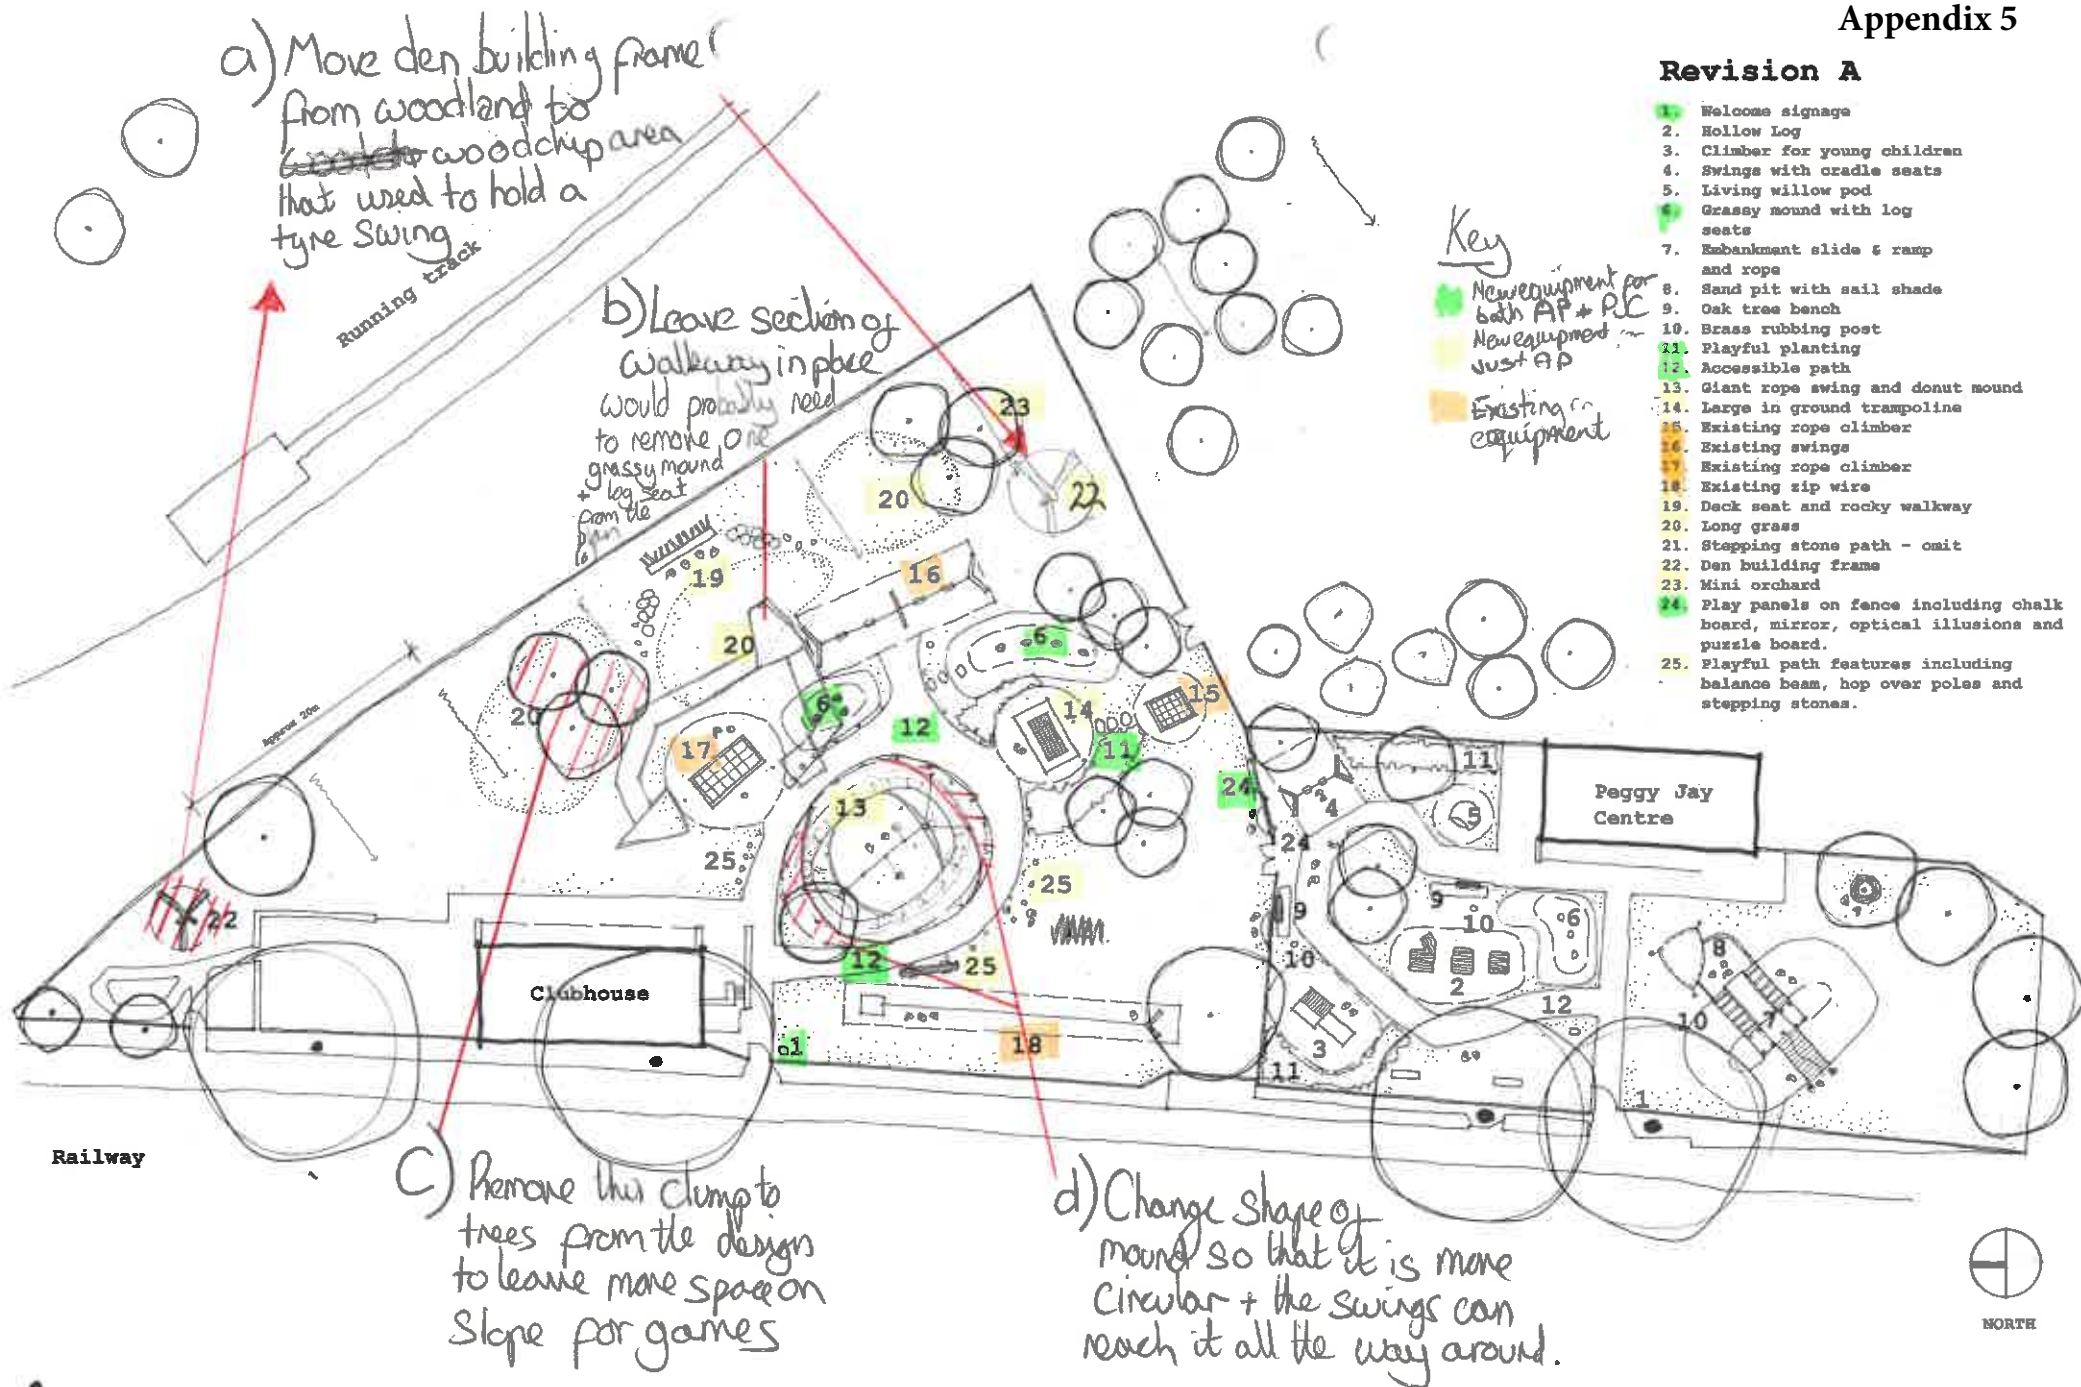 Appendix 5
Revision A
1. Welcome signage
2. Hollow Log
3. Climber for young children
4. Swings with cradle seats
5. Living willow pod
6. Grassy mound with log
seats
7. Embankment slide & ramp
and rope
8. Sand pit with sail shade
9. Oak tree bench
10. Brass rubbing post
11. Playful planting
12. Accessible path
13. Giant rope swing and donut mound
14. Large in ground trampoline
15. Existing rope climber
16. Existing swings
17. Existing rope climber
18. Existing zip wire
19. Deck seat and rocky walkway
20. Long grass
21. Stepping stone path - omit
22. Den building frame
23. Mini orchard
24. Play panels on fence including chalk
board, mirror, optical illusions and
puzzle board.
25. Playful path features including
balance beam, hop over poles and
stepping stones.
Key
New equipment for
both AP + PJC
New equipment in
Just AP
Existing
equipment
a) Move den building frame
from woodland to
woodchip area
that used to hold a
tyre swing
Running track
b) Leave section of
walkway in place
would probably need
to remove one
grassy mound
+ log seat
from the
23
20
22
16
19
20
6
6
15
14
12
20
17
11
24
11
Peggy Jay
Centre
4
5
13
24
25
25
9
9
10
6
22
12
25
10
2
8
Clubhouse
12
7
10
1
18
3
11
1
approx 20m
Railway
c) Remove this clump to
trees from the design
to leave more space on
slope for games
d) Change shape of
mound so that it is more
circular + the swings can
reach it all the way around.
NORTH